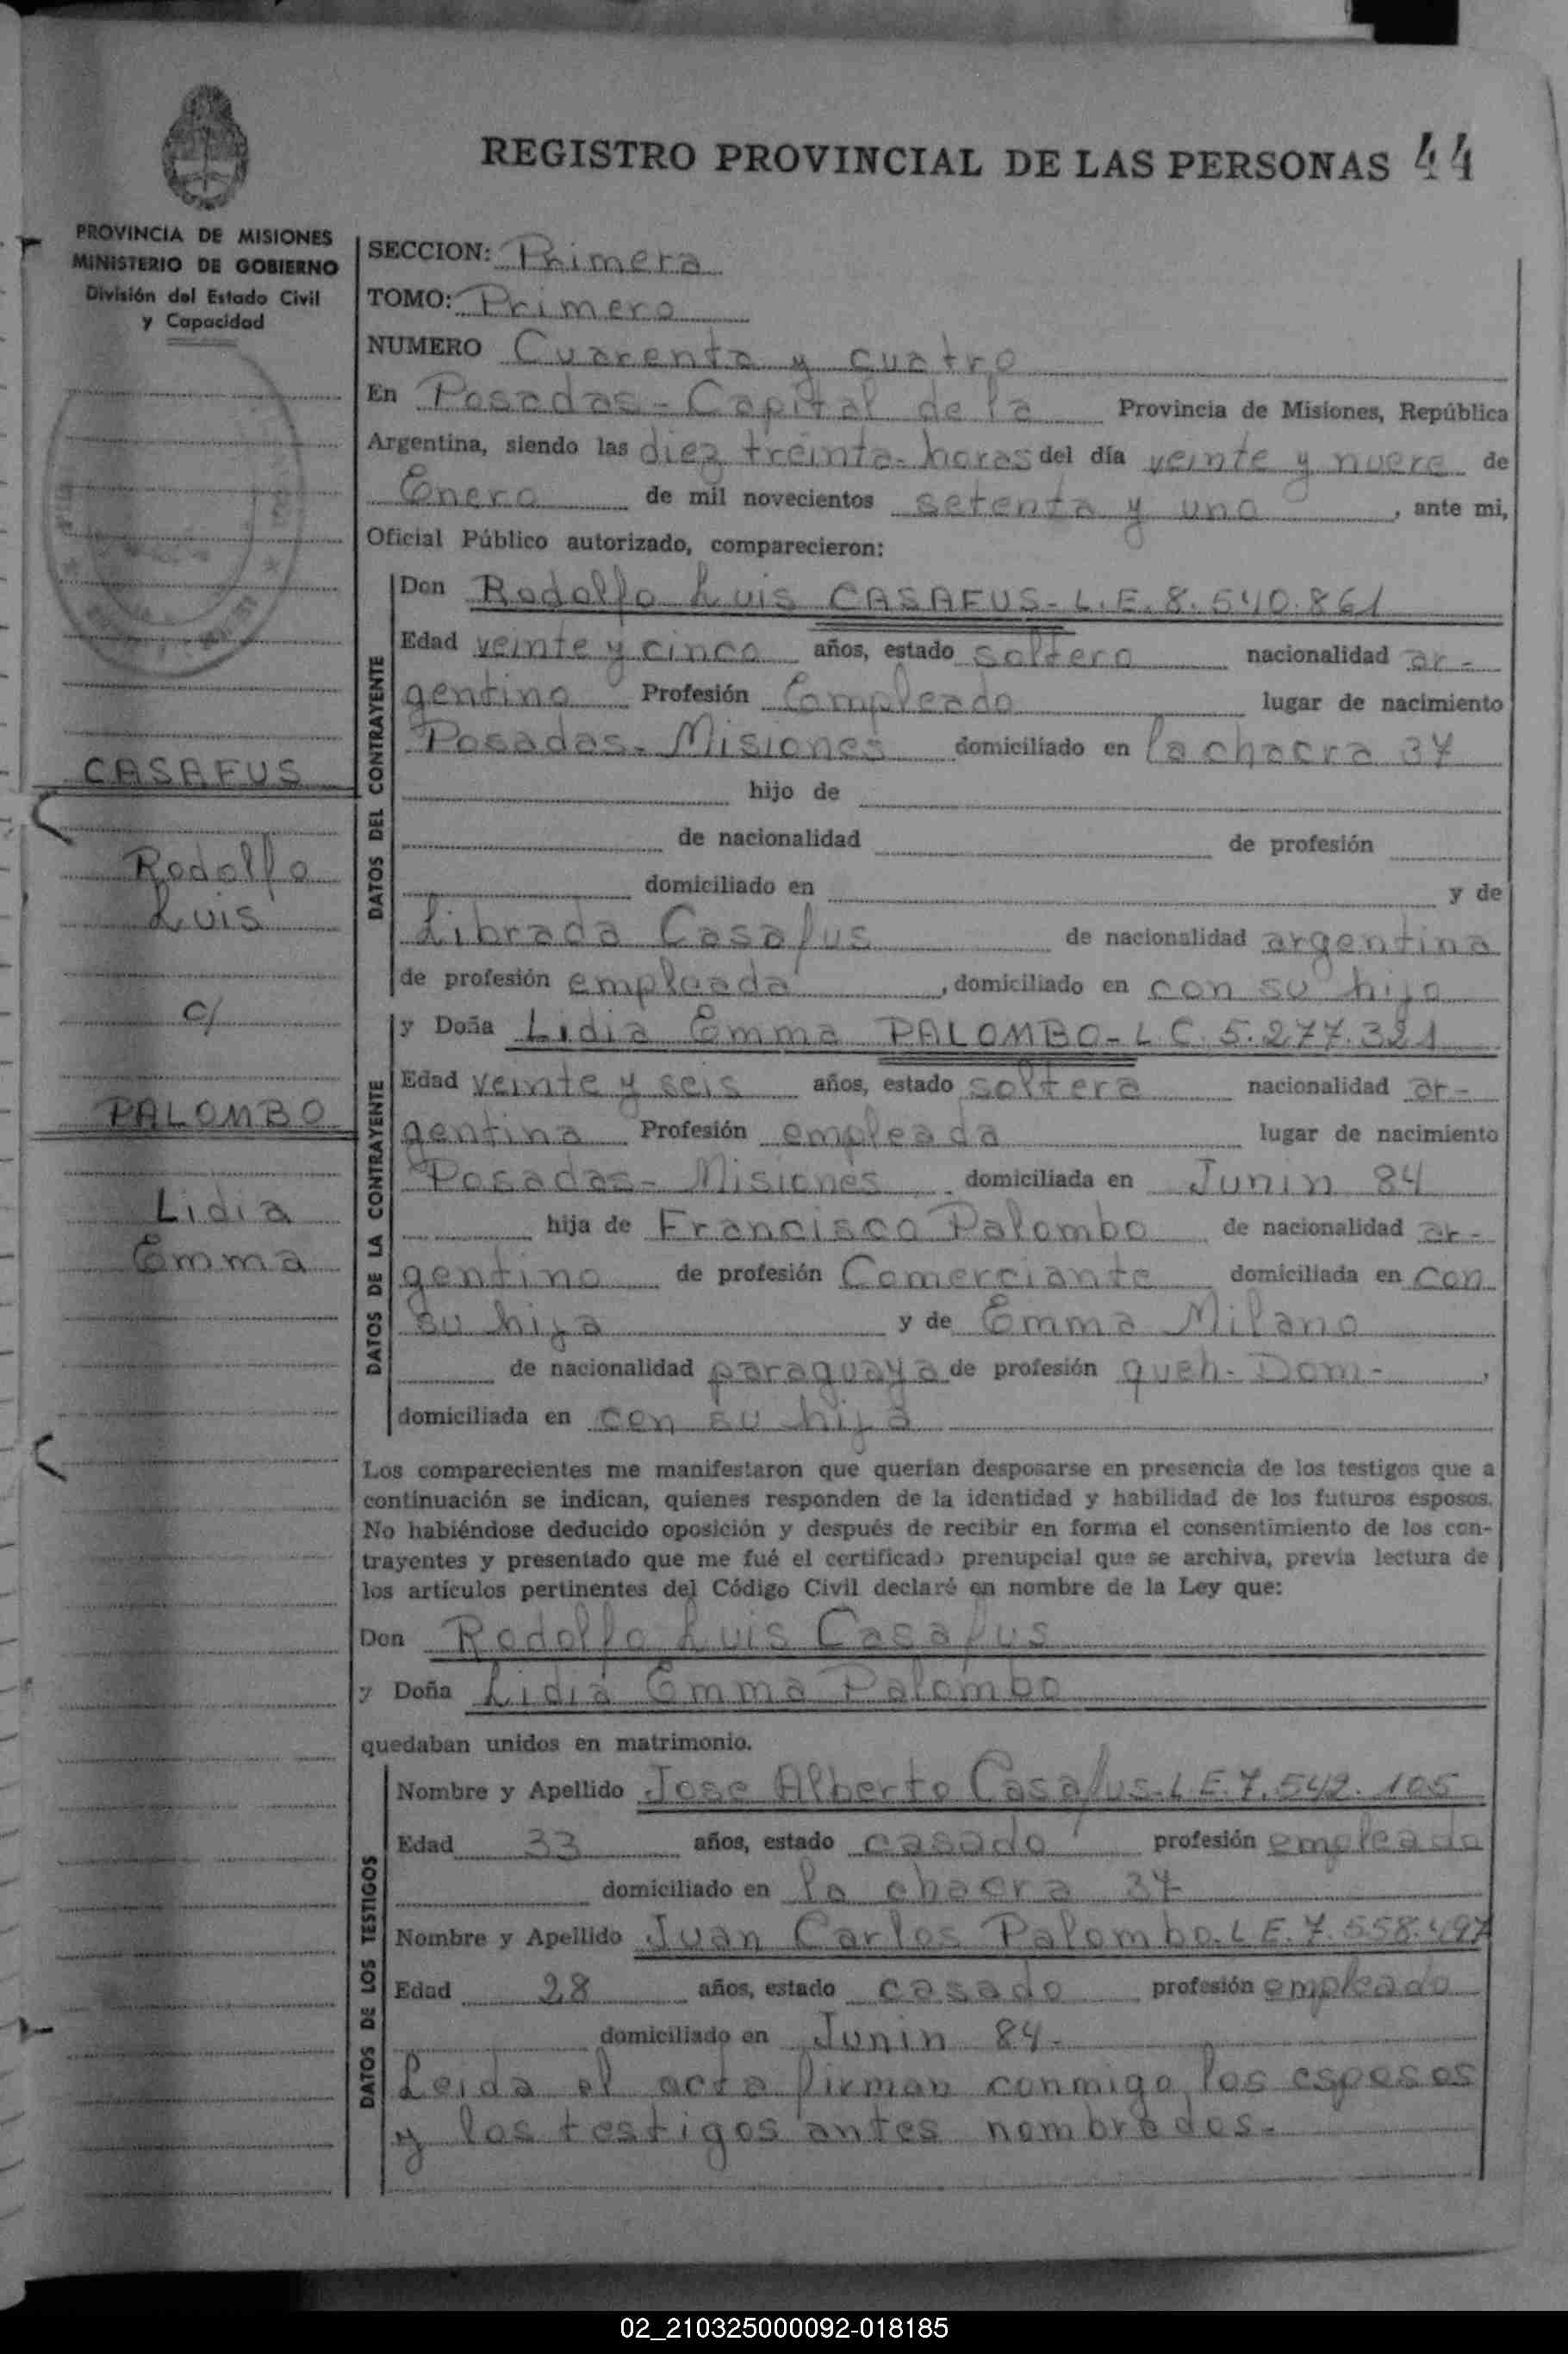 REGISTRO PROVINCIAL DE LAS PERSONAS 44
PROVINCIA DE MISIONES
MINISTERIO DE GOBIERNO
División del Estado Civil
y Capacidad
SECCION: Primera
TOMO: Primero
NUMERO Cuarenta y cuatro
En Posadas - Capital de la Provincia de Misiones, República
Argentina, siendo las diez treinta - horas del día veinte y nueve de
Enero de mil novecientos setenta y uno, ante mi,
Oficial Público autorizado, comparecieron:
CASAFUS
Rodolfo
Luis
c/
PALOMBO
Lidia
Emma
DATOS DEL CONTRAYENTE
Don Rodolfo Luis CASAFUS - L.E. 8.540.861
Edad veinte y cinco años, estado soltero nacionalidad ar-
gentino Profesión Empleado lugar de nacimiento
Posadas - Misiones domiciliado en la chacra 37
hijo de
de nacionalidad de profesión
domiciliado en y de
Librada Casafus de nacionalidad argentina
de profesión empleada, domiciliado en con su hijo
DATOS DE LA CONTRAYENTE
y Doña Lidia Emma PALOMBO - L.C. 5.277.321
Edad veinte y seis años, estado soltera nacionalidad ar-
gentina Profesión empleada lugar de nacimiento
Posadas - Misiones domiciliada en Junin 84
hija de Francisco Palombo de nacionalidad ar-
gentino de profesión Comerciante domiciliada en con
su hija y de Emma Milano
de nacionalidad paraguaya de profesión queh - Dom -,
domiciliada en con su hija
Los comparecientes me manifestaron que querían desposarse en presencia de los testigos que a
continuación se indican, quienes responden de la identidad y habilidad de los futuros esposos.
No habiéndose deducido oposición y después de recibir en forma el consentimiento de los con-
trayentes y presentado que me fué el certificado prenupcial que se archiva, previa lectura de
los artículos pertinentes del Código Civil declaré en nombre de la Ley que:
Don Rodolfo Luis Casafus
y Doña Lidia Emma Palombo
quedaban unidos en matrimonio.
DATOS DE LOS TESTIGOS
Nombre y Apellido Jose Alberto Casafus - L.E. 7.542.105
Edad 33 años, estado casado profesión empleado
domiciliado en la chacra 37
Nombre y Apellido Juan Carlos Palombo. L E. 7.558.497
Edad 28 años, estado casado profesión empleado
domiciliado en Junin 84 -
Leida el acta firman conmigo los esposos
y los testigos antes nombrados. -
02_210325000092-018185